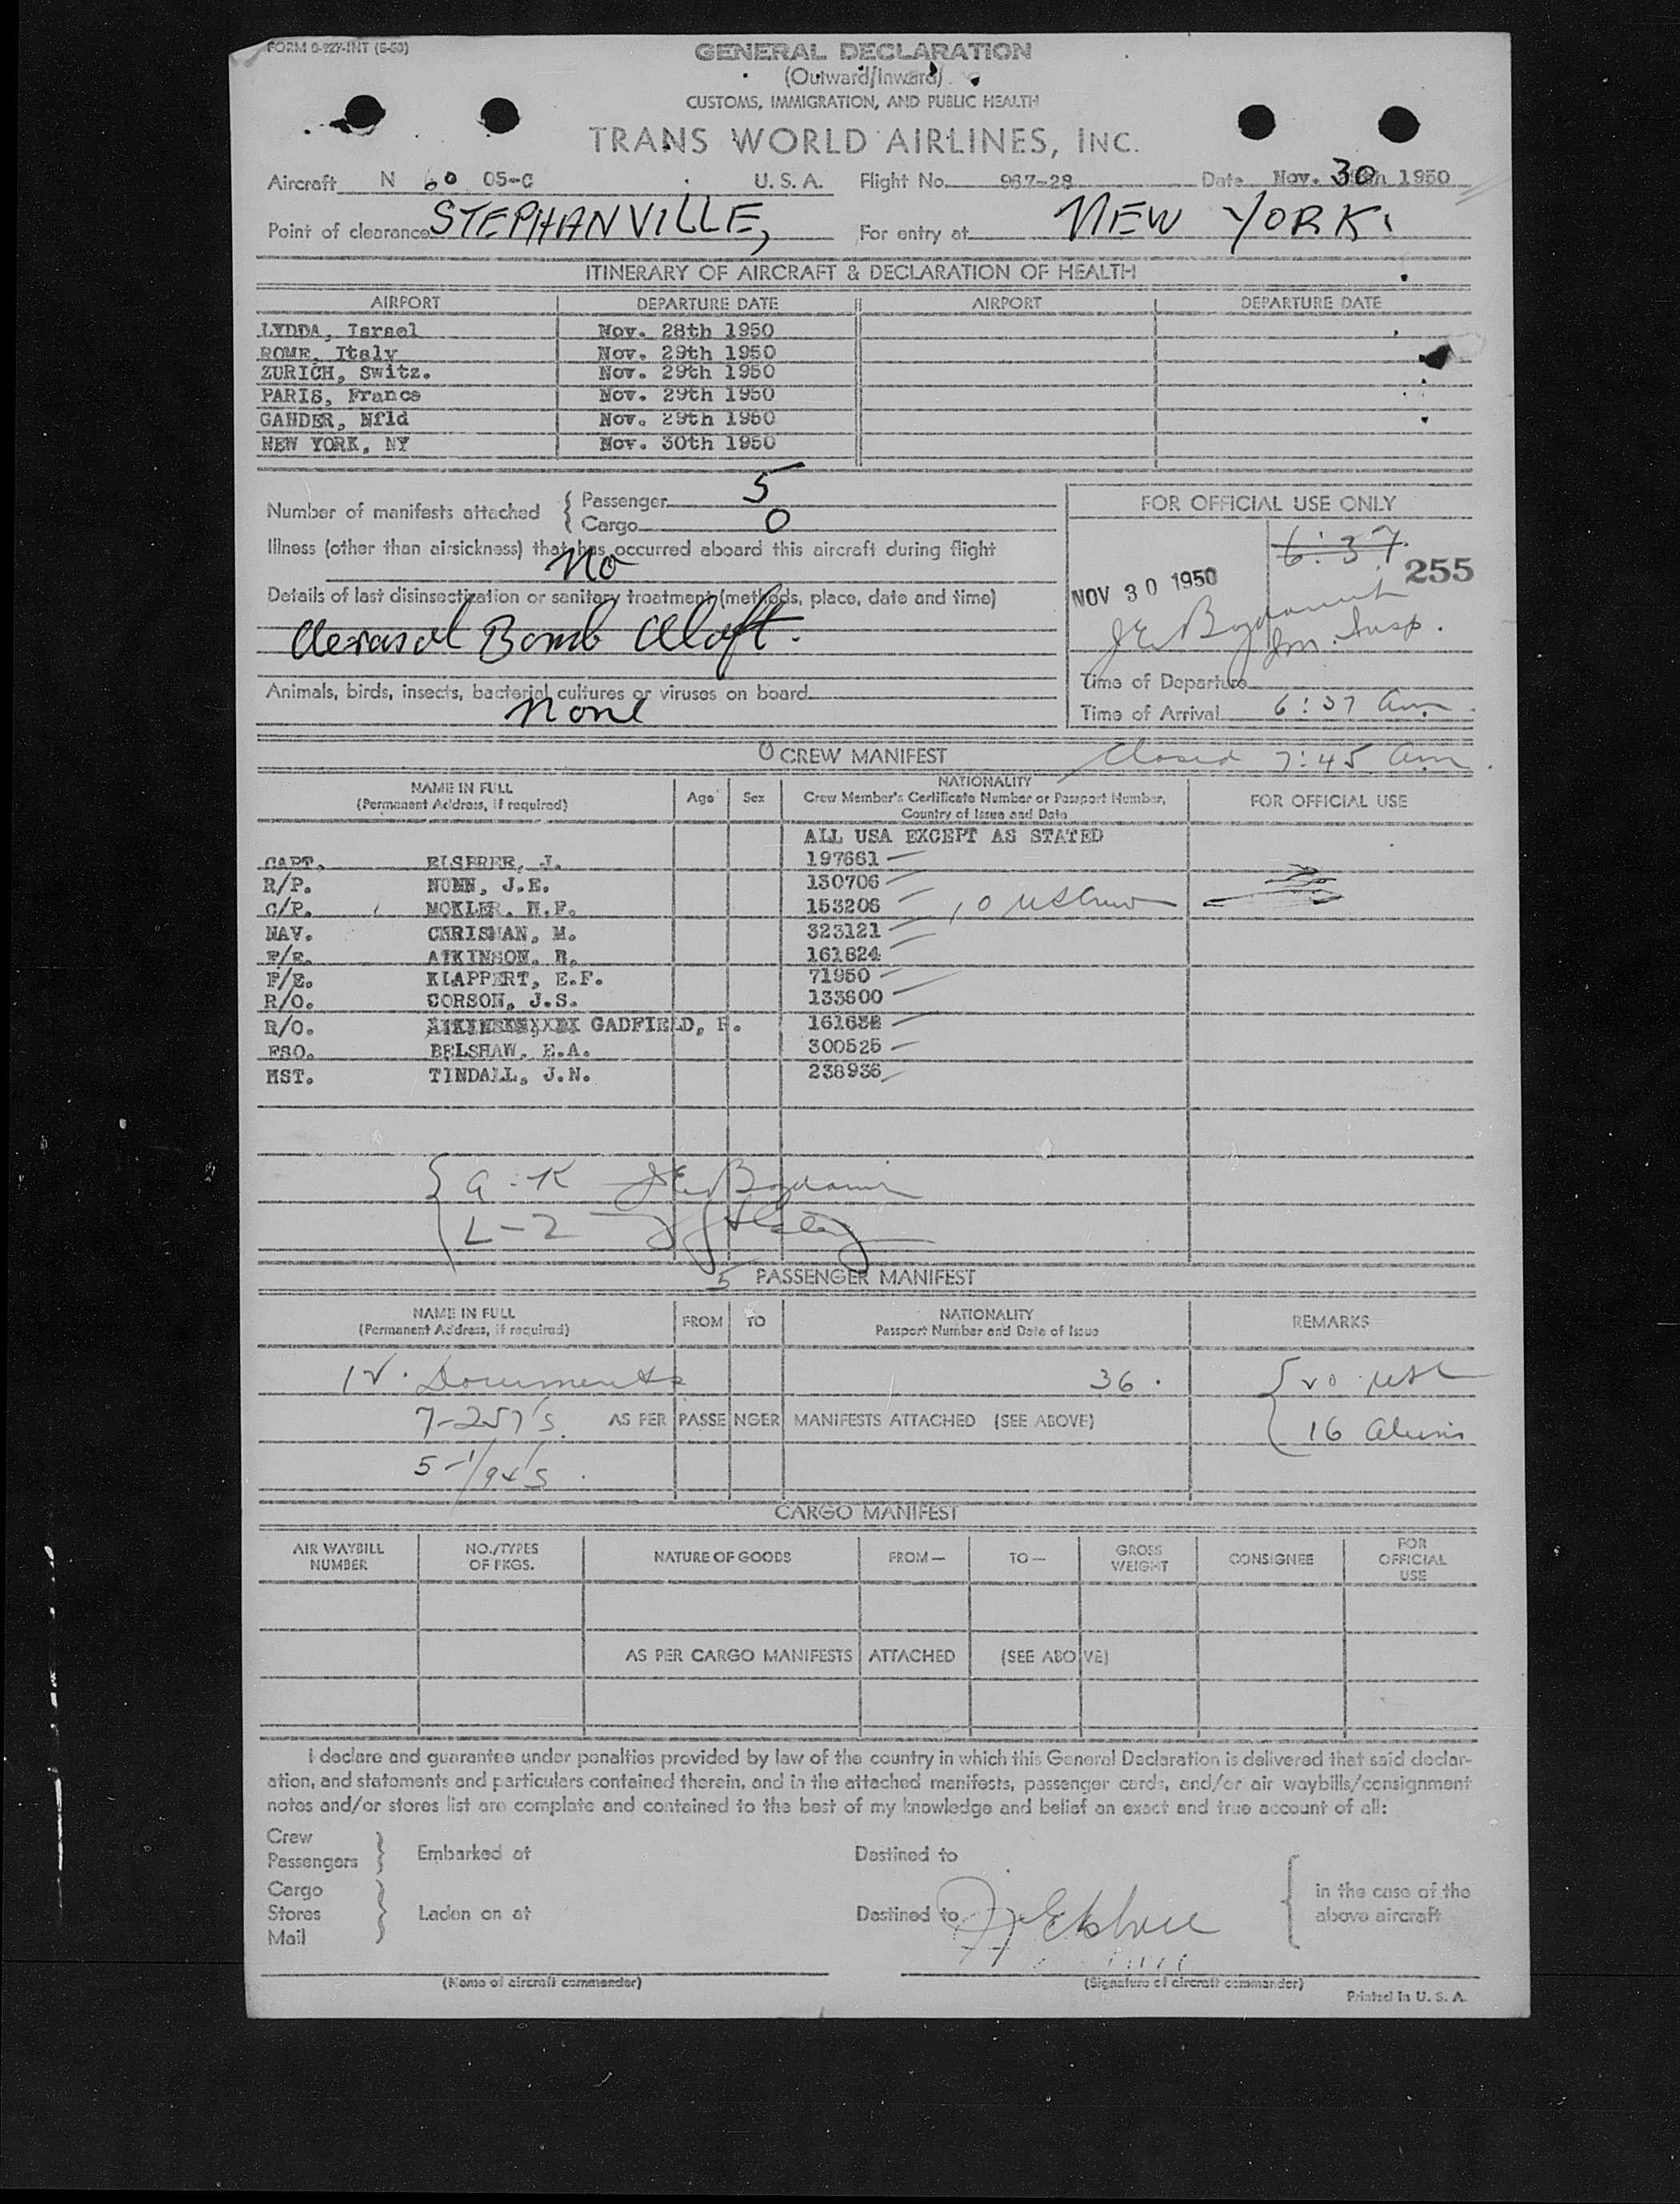 FORM 0-927-INT (5-50)
GENERAL DECLARATION
(Outward/Inward)
CUSTOMS, IMMIGRATION, AND PUBLIC HEALTH
TRANS WORLD AIRLINES, INC.
Aircraft N 60 05-C U. S. A. Flight No. 967-28 Date Nov. 30th 1950
Point of clearance STEPHANVILLE, For entry at NEW YORK.
ITINERARY OF AIRCRAFT & DECLARATION OF HEALTH
AIRPORT DEPARTURE DATE AIRPORT DEPARTURE DATE
LYDDA, Israel Nov. 28th 1950
ROME, Italy Nov. 29th 1950
ZURICH, Switz. Nov. 29th 1950
PARIS, France Nov. 29th 1950
GANDER, Nfld Nov. 29th 1950
NEW YORK, NY Nov. 30th 1950
Number of manifests attached { Passenger 5
Cargo 0
Illness (other than airsickness) that has occurred aboard this aircraft during flight
No
Details of last disinsectization or sanitary treatment (methods, place, date and time)
Aerasol Bomb Aloft.
Animals, birds, insects, bacterial cultures or viruses on board
None
FOR OFFICIAL USE ONLY
6:37
NOV 30 1950 255
Im. Insp.
Time of Departure
Time of Arrival 6:37 am.
CREW MANIFEST Closed 7:45 am.
NAME IN FULL
(Permanent Address, if required)
Age Sex
NATIONALITY
Crew Member's Certificate Number or Passport Number,
Country of Issue and Date
FOR OFFICIAL USE
ALL USA EXCEPT AS STATED
CAPT. J. 197661
R/P. NUNN, J.E. 130706
C/P. MOKLER, W.F. 153206
NAV. CHRISMAN, M. 323121
F/E. ATKINSON, R. 161624
F/E. KLAPPERT, E.F. 71950
R/O. CORSON, J.S. 133600
R/O. GADFIELD, 
FSO. BELSHAW, E.A. 300525
HST. TINDALL, J.N. 238936
L-2
5 PASSENGER MANIFEST
NAME IN FULL
(Permanent Address, if required)
FROM TO
NATIONALITY
Passport Number and Date of Issue
REMARKS
12. Documents 36. { 20 USC
7-257's. AS PER PASSENGER MANIFESTS ATTACHED (SEE ABOVE) 16 aliens
5-1/94's.
CARGO MANIFEST
AIR WAYBILL
NUMBER
NO./TYPES
OF PKGS.
NATURE OF GOODS
FROM—
TO—
GROSS
WEIGHT
CONSIGNEE
FOR
OFFICIAL
USE
AS PER CARGO MANIFESTS ATTACHED (SEE ABOVE)
I declare and guarantee under penalties provided by law of the country in which this General Declaration is delivered that said declar-
ation, and statements and particulars contained therein, and in the attached manifests, passenger cards, and/or air waybills/consignment
notes and/or stores list are complete and contained to the best of my knowledge and belief an exact and true account of all:
Crew
Passengers } Embarked at Destined to
Cargo
Stores } Laden on at Destined to
Mail
{ in the case of the
above aircraft
(Name of aircraft commander) (Signature of aircraft commander)
Printed in U. S. A.